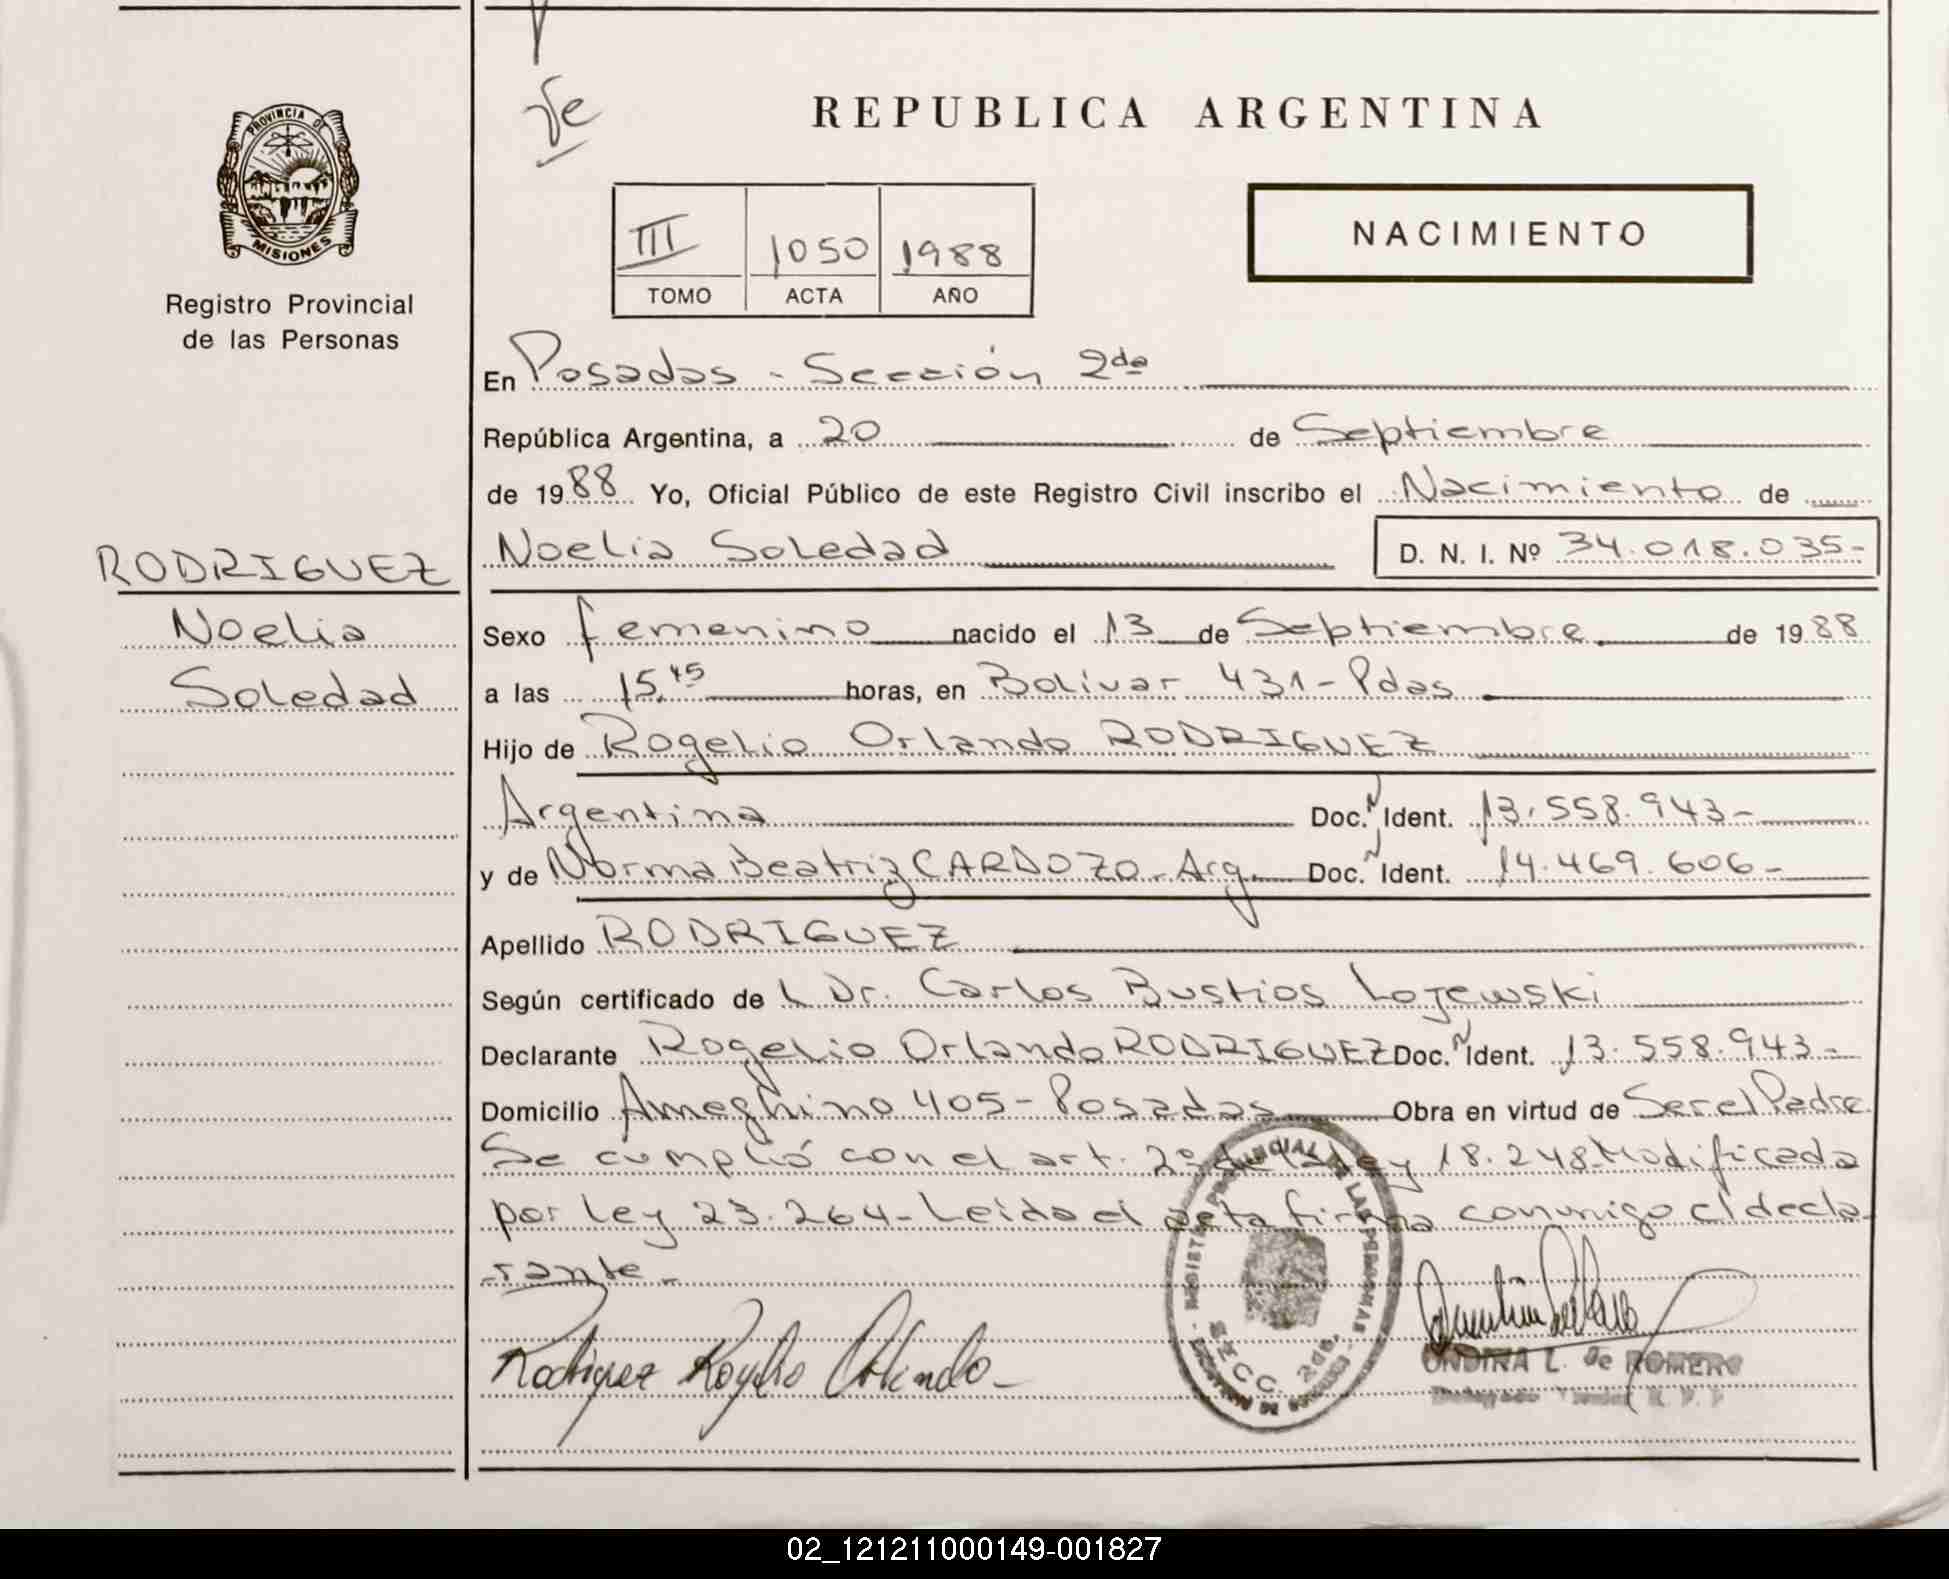 REPUBLICA ARGENTINA
PROVINCIA DE
MISIONES
Registro Provincial
de las Personas
III 1050 1988
TOMO ACTA AÑO
NACIMIENTO
En Posadas - Sección 2da
República Argentina, a 20 de Septiembre
de 1988 Yo, Oficial Público de este Registro Civil inscribo el Nacimiento de
RODRIGUEZ
Noelia
Soledad
Noelia Soledad D. N. I. Nº 34.018.035-
Sexo femenino nacido el 13 de Septiembre de 1988
a las 15,45 horas, en Bolivar 431-Pdas
Hijo de Rogelio Orlando RODRIGUEZ
Argentina Doc. Ident. 13.558.943-
y de Norma Beatriz CARDOZO-Arg. Doc. Ident. 14.469.606-
Apellido RODRIGUEZ
Según certificado de L Dr. Carlos Bustios Lojewski
Declarante Rogelio Orlando RODRIGUEZ Doc. Ident. 13.558.943-
Domicilio Ameghino 405-Posadas Obra en virtud de Ser el Padre
Se cumplió con el art. 2º de la ley 18.248 Modificada
por ley 23.264-Leida el acta firma conmigo el decla-
-rante-
Rodriguez Rogelio Orlando-
REGISTRO PROVINCIAL DE LAS PERSONAS
SECC. 2da.
ONDINA L. de ROMERO
02_121211000149-001827